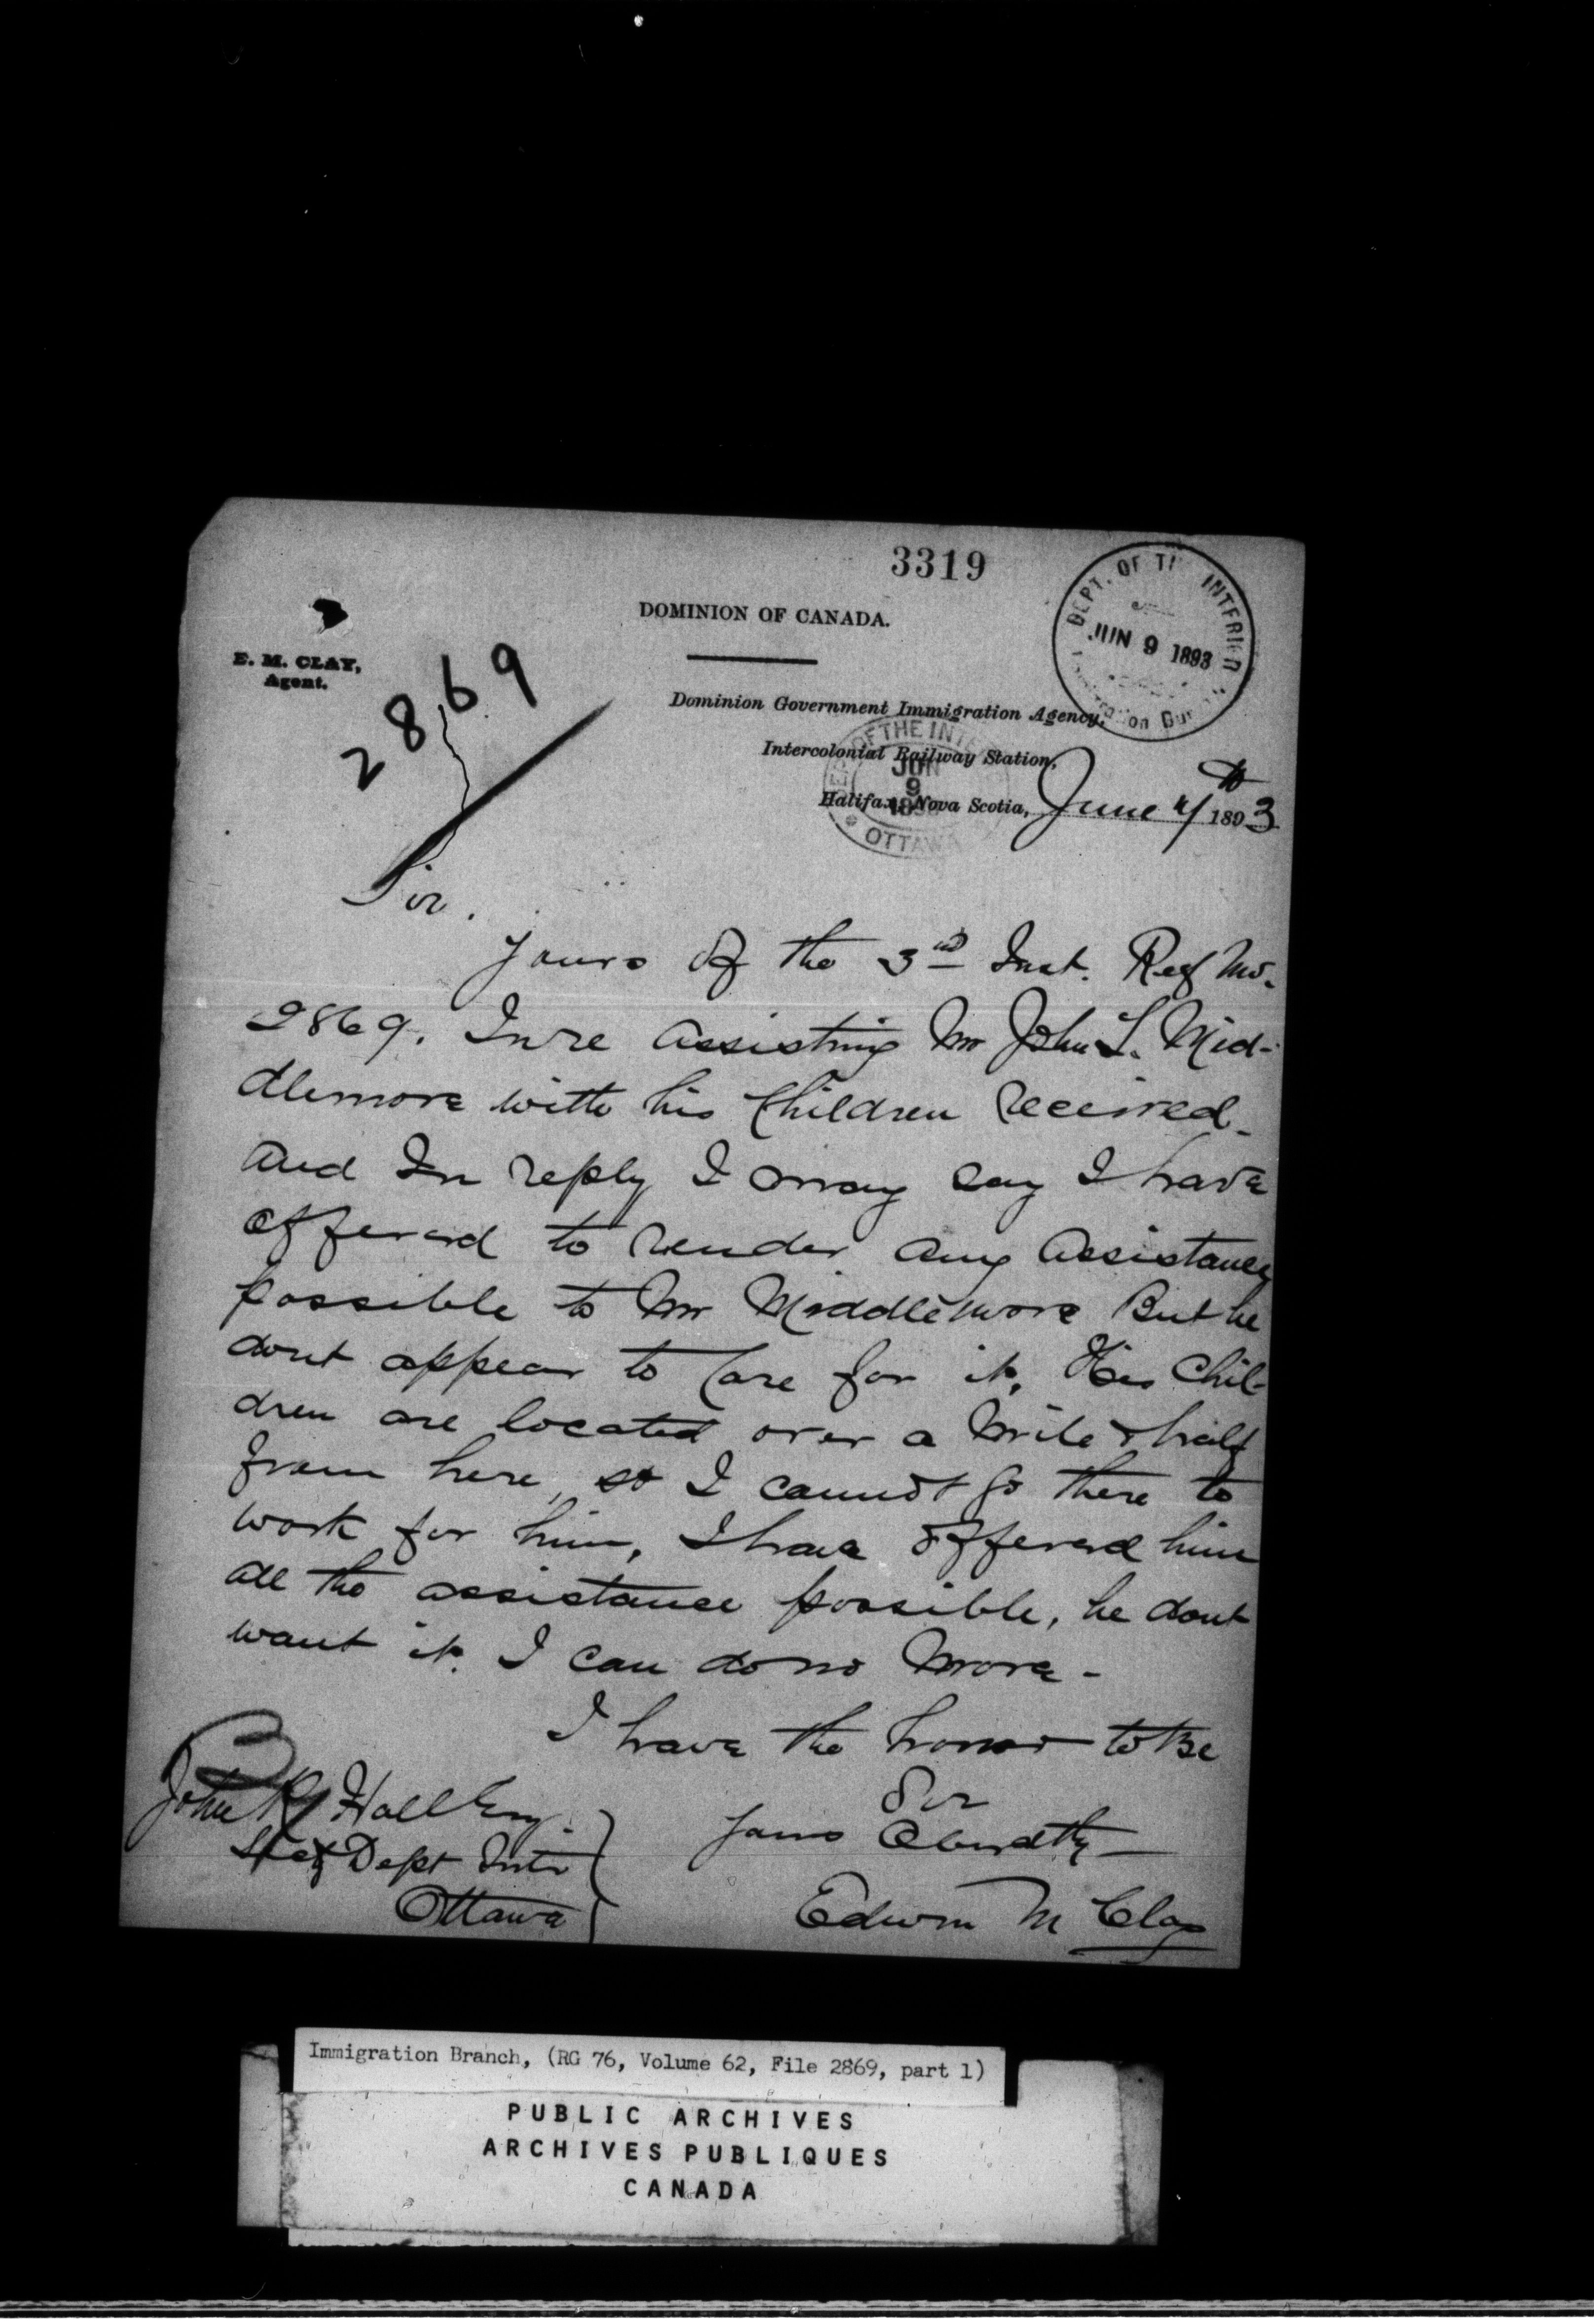 3319
DOMINION OF CANADA.
E. M. CLAY,
Agent.
2869
DEPT. OF THE INTERIOR
JUN 9 1893
Dominion Government Immigration Agency,
Intercolonial Railway Station,
OF THE INTE
JUN
9
OTTAWA
Halifax, Nova Scotia, June th 1893
Sir.
Yours of the 3rd Inst. Ref No.
2869. Inre Assisting Mr John T. Mid-
dlemore with his Children Received.
And In reply I may say I have
offered to render any Assistance
possible to Mr Middlemore But he
dont appear to Care for it, His Chil-
dren are located over a Mile & half
from here, so I cannot go there to
work for him, I have offered him
all the assistance possible, he dont
want it. I can do no More -
I have the honor to Be
Sir
Yours Obundtly
Edwin M Clay
John R Hall Esq.
Secy Dept Intr
Ottawa
Immigration Branch, (RG 76, Volume 62, File 2869, part 1)
PUBLIC ARCHIVES
ARCHIVES PUBLIQUES
CANADA